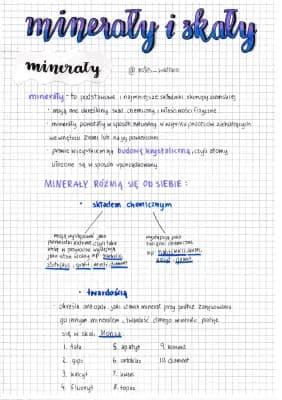 minerały i skały
minerały
@ notes_
minerały - to podstawowe i najmniejsze składniki skorupy ziemskiej
· mają one określony skład chemiczny i właściwości fizyczne
· minerały powstały w sposób naturalny w wyniku procesów zachodzących
wewnątrz Ziemi lub na jej powierzchni
· prawie wszystkie mają budowę krystaliczną, czyli atomy
ułożone są w sposób uporządkowany
MINERAŁY RÓŻNIĄ SIĘ OD SIEBIE :
· składem chemicznym
mogą występować jako
pierwiastki rodzime, czyli takie
które w przyrodzie występują
jako
np. siarka,
grafit, diament
występują jako
związki chemiczne
np.
kwarc, gips
· twardością
określa ona opór, jaki stawia minerał przy próbie zarysowania
go innym minerałem, twardość danego minerału podaje
się w skali Mohsa
1. talk
2. gips
3. kalcyt
4. fluoryt
5. apatyt
6. ortoklaz
7. kwarc
8. topaz
9. korund
10. diament